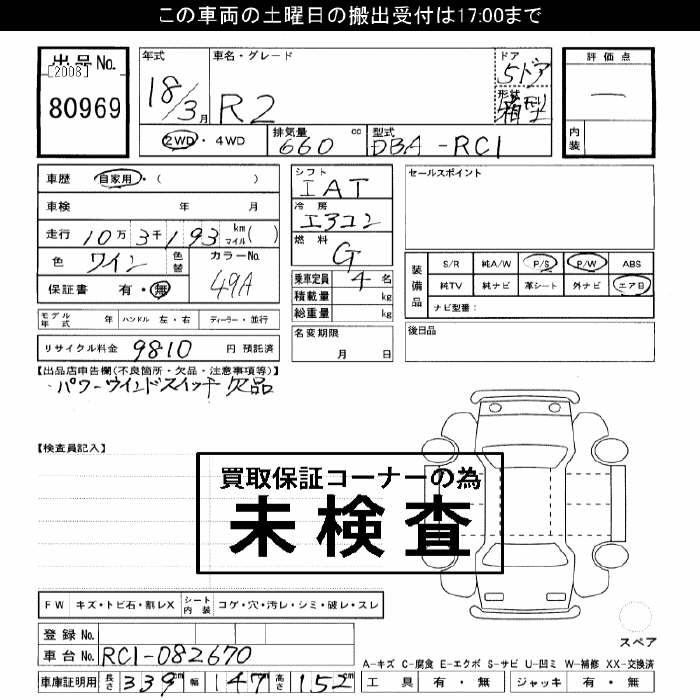 この車両の土曜日の搬出受付は17:00まで
出品No.
[2008]
80969
年式
18/3月
車名・グレード
R2
ドア
5ドア
形状
箱型
評価点
―
内装
2WD・4WD
排気量 660 cc
型式 DBA-RC1
車歴 自家用・( )
車検 年 月
走行 10万3千193 km マイル( )
色 ワイン 色替 カラーNo. 49A
保証書 有・無
モデル年式 年 ハンドル 左・右 ディーラー・並行
リサイクル料金 9810 円 預託済
シフト
IAT
冷房
エアコン
燃料
G
乗車定員 4 名
積載量 kg
総重量 kg
名変期限
月 日
セールスポイント
装備品
S/R 純A/W P/S P/W ABS
純TV 純ナビ 革シート 外ナビ エアB
ナビ型番:
後日品
【出品店申告欄(不良箇所・欠品・注意事項等)】
・パワーウインドスイッチ欠品
【検査員記入】
買取保証コーナーの為
未検査
FW キズ・トビ石・割レX シート内装 コゲ・穴・汚レ・シミ・破レ・スレ
登録No.
車台No. RC1-082670
車庫証明用 長さ 339cm 幅 147cm 高さ 152cm
スペア
A-キズ C-腐食 E-エクボ S-サビ U-凹ミ W-補修 XX-交換済
工具 有・無 ジャッキ 有・無